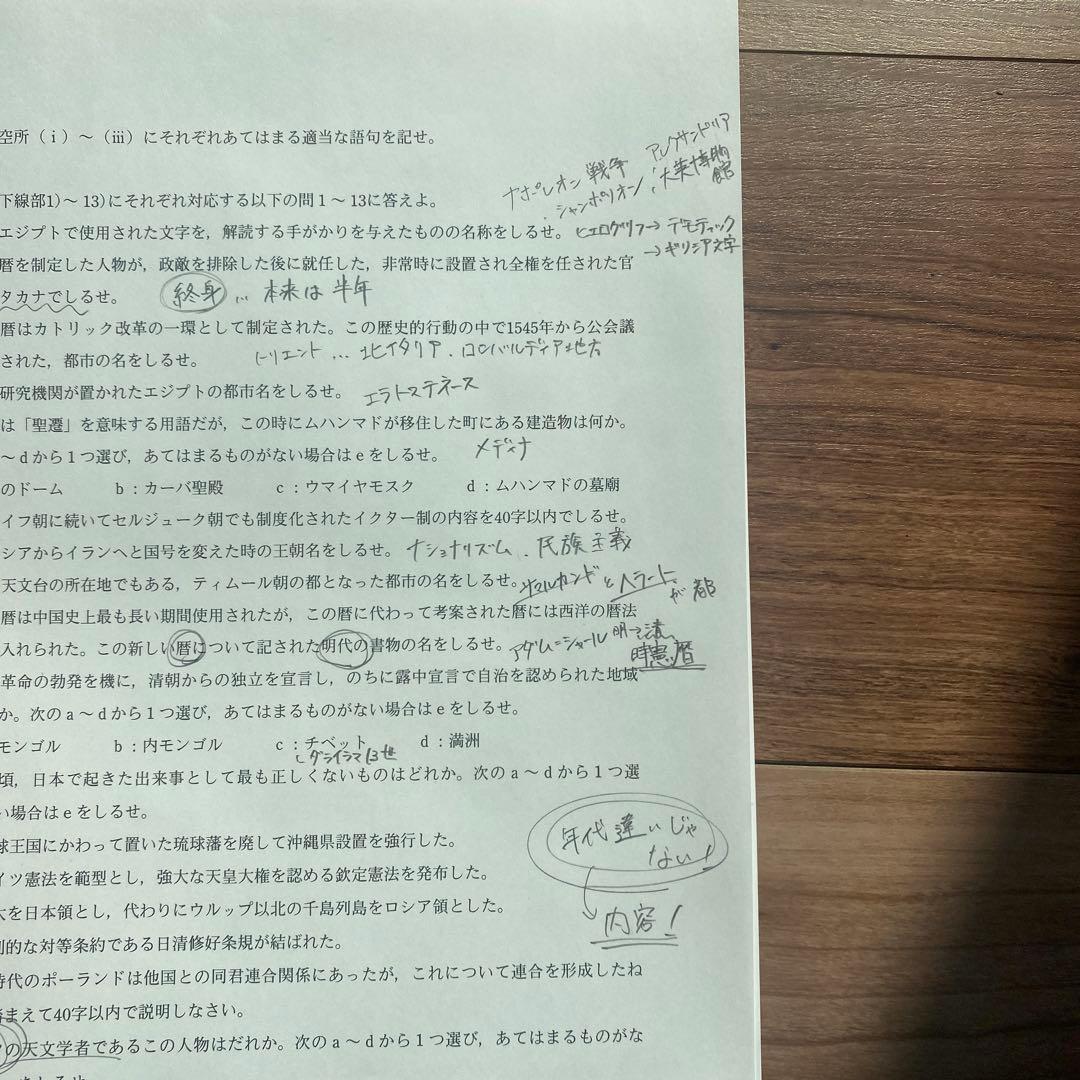 空所（ⅰ）～（ⅲ）にそれぞれあてはまる適当な語句を記せ。
アレクサンドリア
ナポレオン戦争
大英博物館
シャンポリオン
下線部1)～13)にそれぞれ対応する以下の問1～13に答えよ。
エジプトで使用された文字を，解読する手がかりを与えたものの名称をしるせ。 ヒエログリフ→デモティック
→ギリシア文字
暦を制定した人物が，政敵を排除した後に就任した，非常時に設置され全権を任された官
タカナでしるせ。 終身…本来は半年
暦はカトリック改革の一環として制定された。この歴史的行動の中で1545年から公会議
された，都市の名をしるせ。 トリエント…北イタリア．ロンバルディア地方
研究機関が置かれたエジプトの都市名をしるせ。 エラトステネース
は「聖遷」を意味する用語だが，この時にムハンマドが移住した町にある建造物は何か。
～dから1つ選び，あてはまるものがない場合はeをしるせ。 メディナ
のドーム b：カーバ聖殿 c：ウマイヤモスク d：ムハンマドの墓廟
イフ朝に続いてセルジューク朝でも制度化されたイクター制の内容を40字以内でしるせ。
シアからイランへと国号を変えた時の王朝名をしるせ。 ナショナリズム．民族主義
天文台の所在地でもある，ティムール朝の都となった都市の名をしるせ。 サマルカンドとヘラートが都
暦は中国史上最も長い期間使用されたが，この暦に代わって考案された暦には西洋の暦法
入れられた。この新しい暦について記された明代の書物の名をしるせ。 アダム＝シャール 明→清
時憲暦
革命の勃発を機に，清朝からの独立を宣言し，のちに露中宣言で自治を認められた地域
か。次のa～dから1つ選び，あてはまるものがない場合はeをしるせ。
モンゴル b：内モンゴル c：チベット d：満洲
ダライラマ13世
頃，日本で起きた出来事として最も正しくないものはどれか。次のa～dから1つ選
い場合はeをしるせ。
球王国にかわって置いた琉球藩を廃して沖縄県設置を強行した。
年代違いじゃない！
イツ憲法を範型とし，強大な天皇大権を認める欽定憲法を発布した。
太を日本領とし，代わりにウルップ以北の千島列島をロシア領とした。
内容！
別的な対等条約である日清修好条規が結ばれた。
時代のポーランドは他国との同君連合関係にあったが，これについて連合を形成したね
まえて40字以内で説明しなさい。
の天文学者であるこの人物はだれか。次のa～dから1つ選び，あてはまるものがな